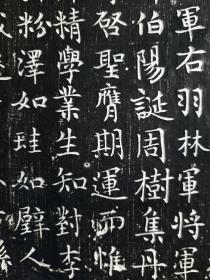 軍右羽林軍將軍
伯陽誕周樹集丹
啓聖膺期運而惟
精學業生知對李
粉澤如珪如璧人